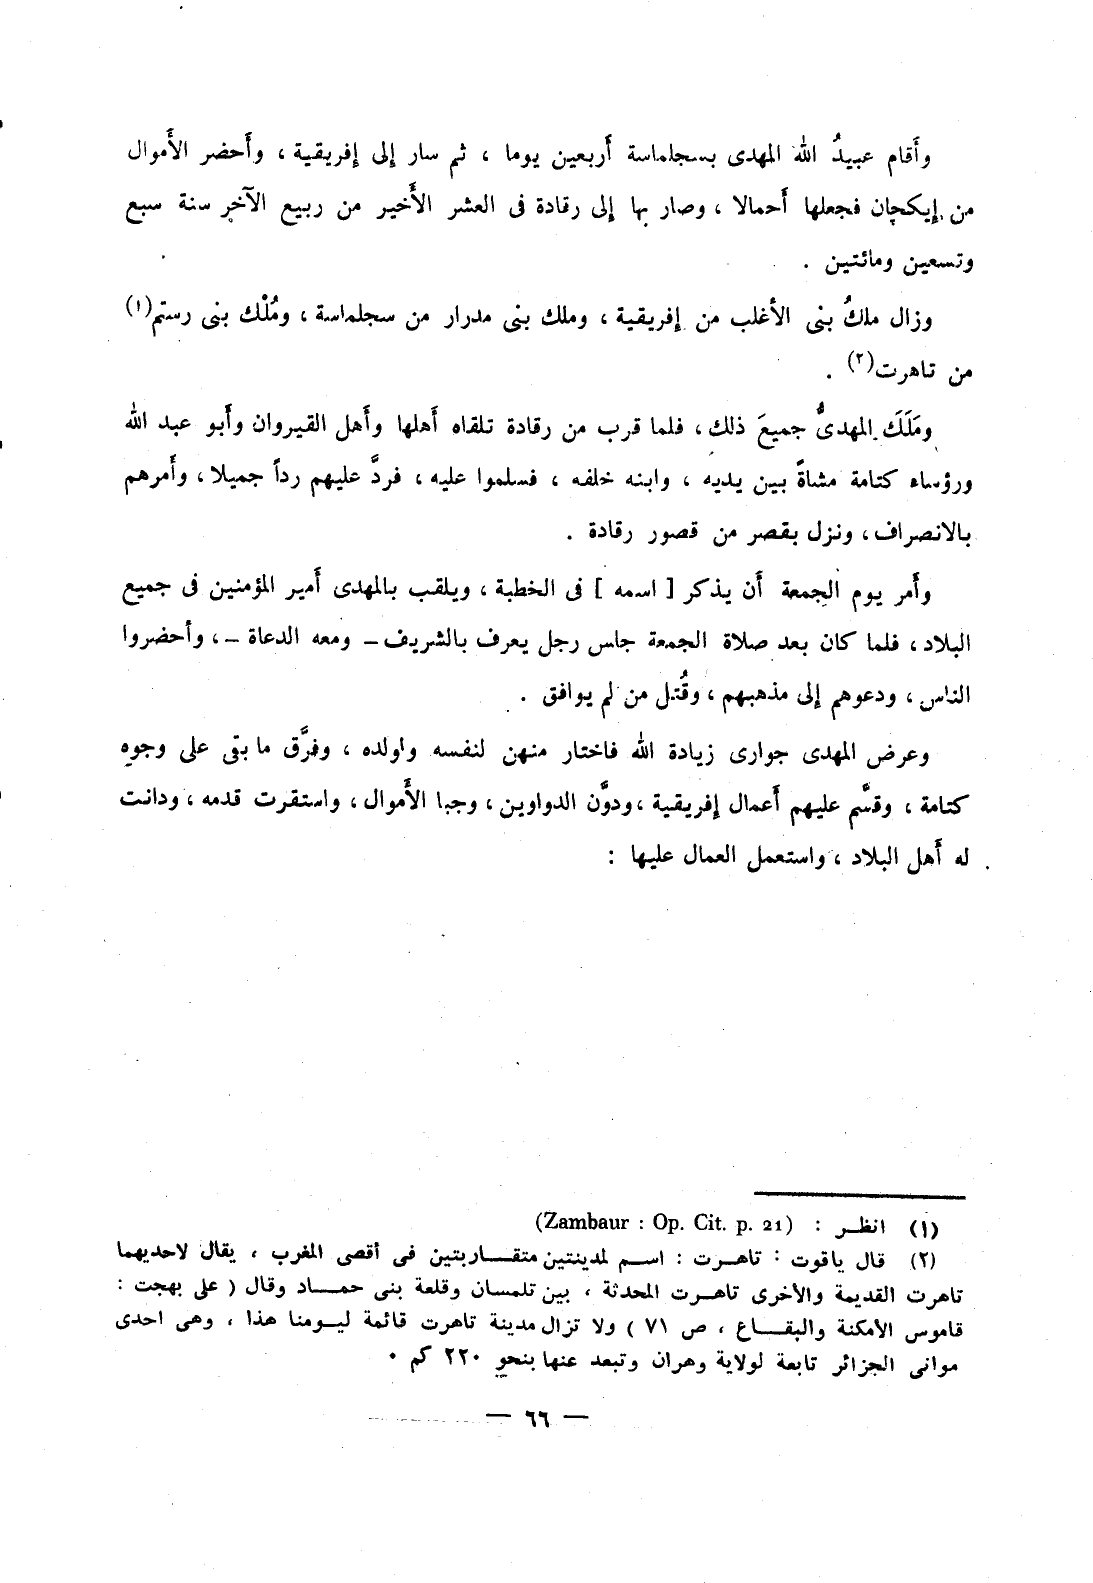 وأَقام عبيدُ الله المهدى بسجلماسة أَربعين يوما ، ثم سار إلى إفريقية ، وأَحضر الأَموال
من إيكجان فجعلها أَحمالا ، وصار بها إلى رقادة فى العشر الأَخير من ربيع الآخر سنة سبع
وتسعين ومائتين .
وزال ملكُ بنى الأغلب من إفريقية ، وملك بنى مدرار من سجلماسة ، ومُلْك بنى رستم(١)
من تاهرت(٢) .
ومَلَكَ المهدىُّ جميعَ ذلك ، فلما قرب من رقادة تلقاه أَهلها وأَهل القيروان وأَبو عبد الله
ورؤساء كتامة مشاةً بين يديه ، وابنه خلفه ، فسلموا عليه ، فردَّ عليهم رداً جميلا ، وأَمرهم
بالانصراف ، ونزل بقصر من قصور رقادة .
وأَمر يوم الجمعة أَن يذكر [ اسمه ] فى الخطبة ، ويلقب بالمهدى أَمير المؤمنين فى جميع
البلاد ، فلما كان بعد صلاة الجمعة جلس رجل يعرف بالشريف – ومعه الدعاة – ، وأَحضروا
الناس ، ودعوهم إلى مذهبهم ، وقُتل من لم يوافق .
وعرض المهدى جوارى زيادة الله فاختار منهن لنفسه ولولده ، وفرَّق ما بقى على وجوه
كتامة ، وقسَّم عليهم أَعمال إفريقية ، ودوَّن الدواوين ، وجبا الأَموال ، واستقرت قدمه ، ودانت
له أَهل البلاد ، واستعمل العمال عليها :
(١) انظر : (Zambaur : Op. Cit. p. 21)
(٢) قال ياقوت : تاهرت : اسم لمدينتين متقاربتين فى أقصى المغرب ، يقال لاحديهما
تاهرت القديمة والأخرى تاهرت المحدثة ، بين تلمسان وقلعة بنى حماد وقال ( على بهجت :
قاموس الأمكنة والبقاع ، ص ٧١ ) ولا تزال مدينة تاهرت قائمة ليومنا هذا ، وهى احدى
موانى الجزائر تابعة لولاية وهران وتبعد عنها بنحو ٢٢٠ كم ٠
— ٦٦ —